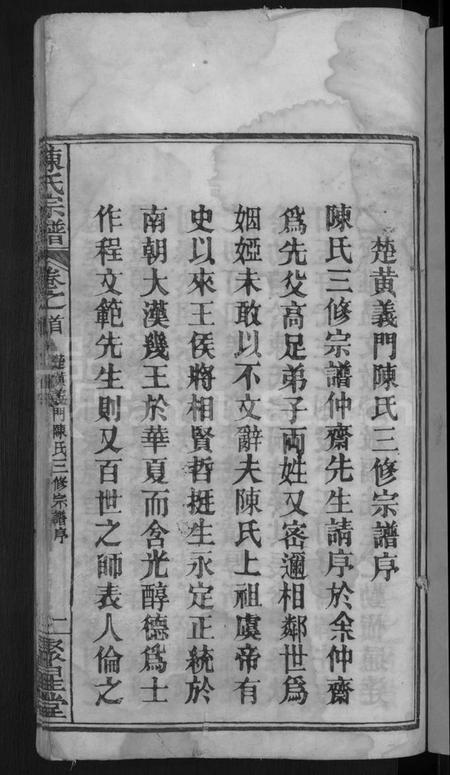 楚黃義門陳氏三修宗譜序
陳氏三修宗譜仲齋先生請序於余仲齋
爲先父高足弟子兩姓又密邇相鄰世爲
姻婭未敢以不文辭夫陳氏上祖虞帝有
史以來王侯將相賢哲挺生永定正統於
南朝大漢幾王於華夏而含光醇德爲士
作程文範先生則又百世之師表人倫之
陳氏宗譜
卷之首
楚黃義門陳氏三修宗譜序
聚星堂